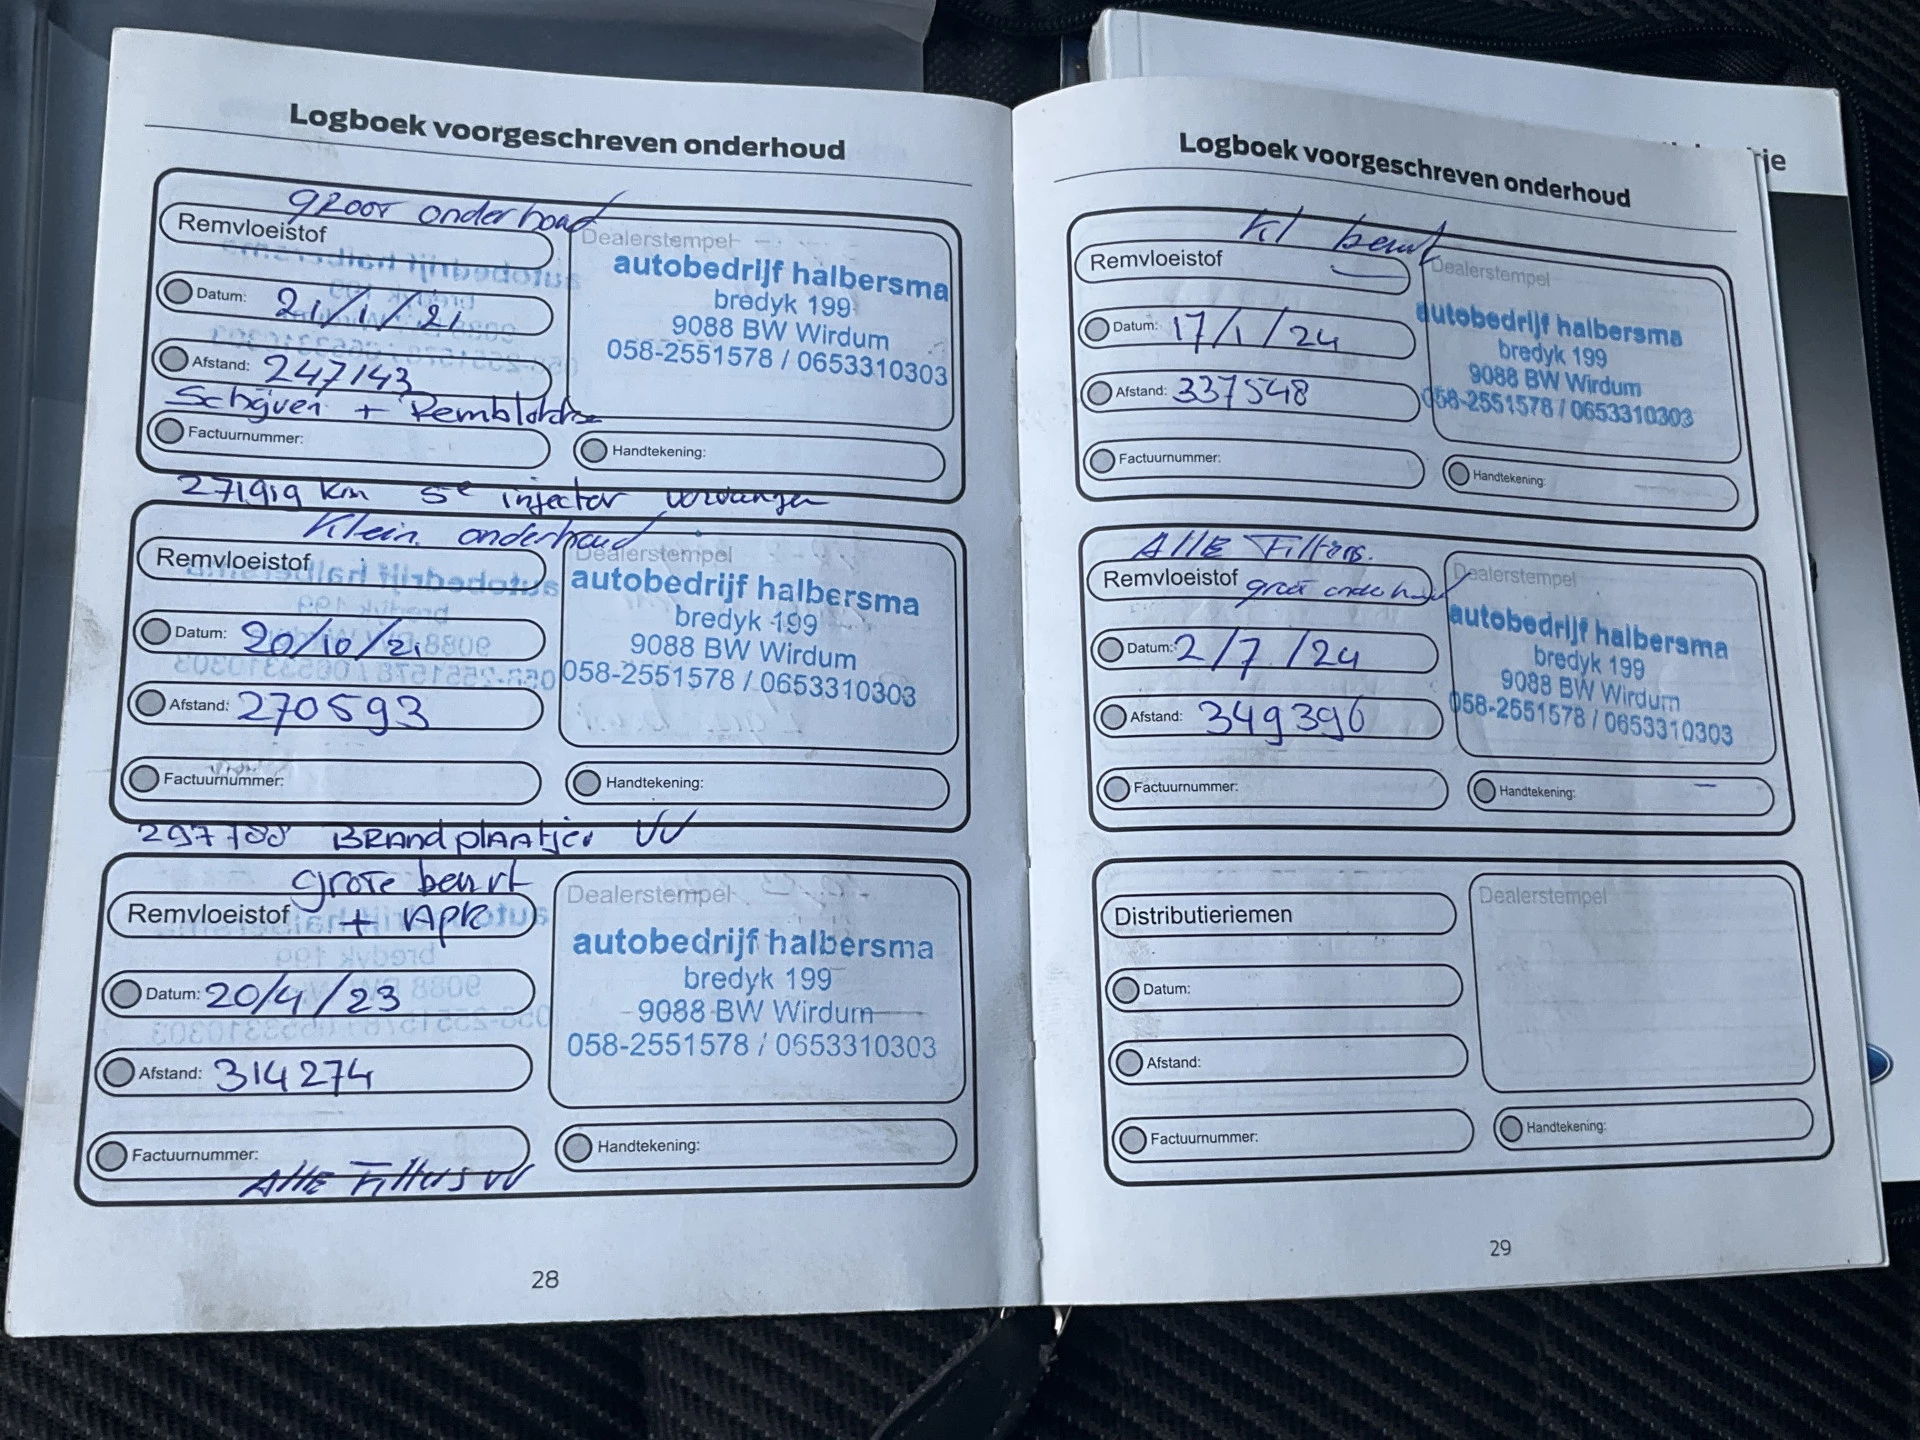 Logboek voorgeschreven onderhoud
groot onderhoud
Remvloeistof
Dealerstempel
autobedrijf halbersma
bredyk 199
9088 BW Wirdum
058-2551578 / 0653310303
Datum: 21/1/21
Afstand: 247143
Schijven + Remblokke
Factuurnummer:
Handtekening:
271919 km 5e injector vervangen
Klein onderhoud
Remvloeistof
Dealerstempel
autobedrijf halbersma
bredyk 199
9088 BW Wirdum
058-2551578 / 0653310303
Datum: 20/10/21
Afstand: 270593
Factuurnummer:
Handtekening:
BRANDplaatjes VV
grote beurt
Remvloeistof + Apk
Dealerstempel
autobedrijf halbersma
bredyk 199
9088 BW Wirdum
058-2551578 / 0653310303
Datum: 20/4/23
Afstand: 314274
Factuurnummer:
Handtekening:
Alle Filters VV
28
Logboek voorgeschreven onderhoud
kl beurt
Remvloeistof
Dealerstempel
autobedrijf halbersma
bredyk 199
9088 BW Wirdum
058-2551578 / 0653310303
Datum: 17/1/24
Afstand: 337548
Factuurnummer:
Handtekening:
Alle Filters.
Remvloeistof groot onderhoud
Dealerstempel
autobedrijf halbersma
bredyk 199
9088 BW Wirdum
058-2551578 / 0653310303
Datum: 2/7/24
Afstand: 349396
Factuurnummer:
Handtekening:
Distributieriemen
Dealerstempel
Datum:
Afstand:
Factuurnummer:
Handtekening:
29